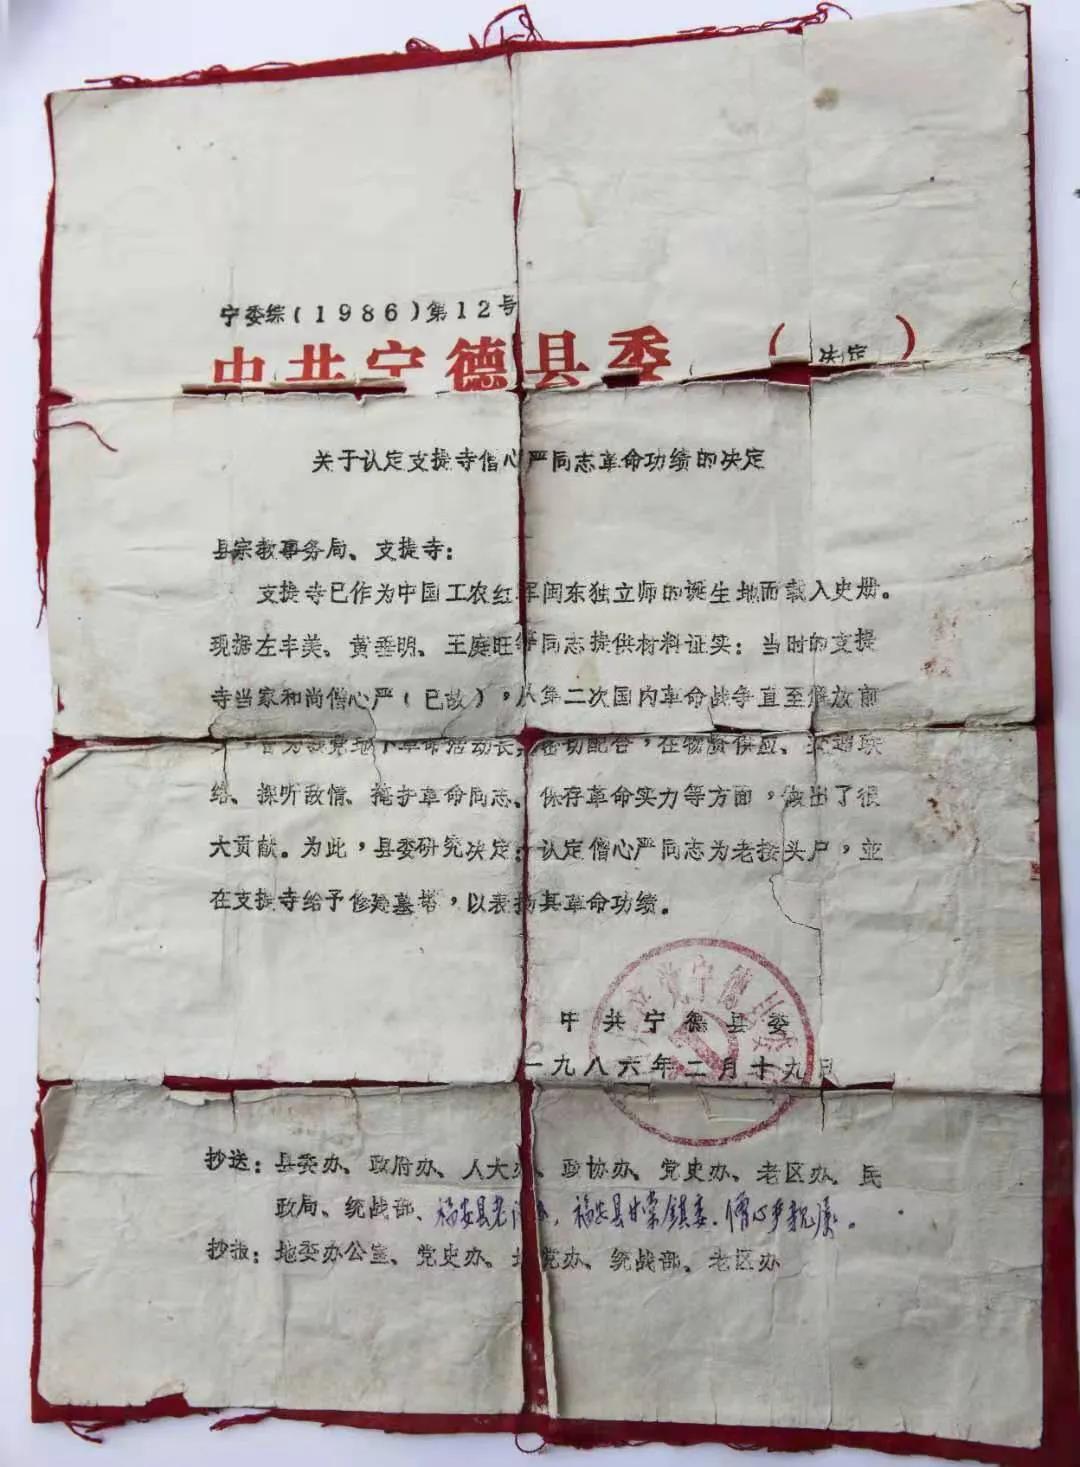 宁委综(1986)第12号
中共宁德县委（决定）
关于认定支提寺僧心严同志革命功绩的决定
县宗教事务局、支提寺：
支提寺已作为中国工农红军闽东独立师的诞生地而载入史册。
现据左丰美、黄垂明、王庭旺等同志提供材料证实：当时的支提
寺当家和尚僧心严(已故)，从第二次国内革命战争直至解放前
为我党地下革命活动长密切配合，在物质供应、交通联
络、探听敌情、掩护革命同志、保存革命实力等方面，做出了很
大贡献。为此，县委研究决定：认定僧心严同志为老接头户，並
在支提寺给予修建墓塔，以表扬其革命功绩。
中共宁德县委
一九八六年二月十九日
抄送：县委办、政府办、人大办、政协办、党史办、老区办、民
政局、统战部、福安县老区办，福安县甘棠镇委、僧心严亲属。
抄报：地委办公室、党史办、党办、统战部、老区办